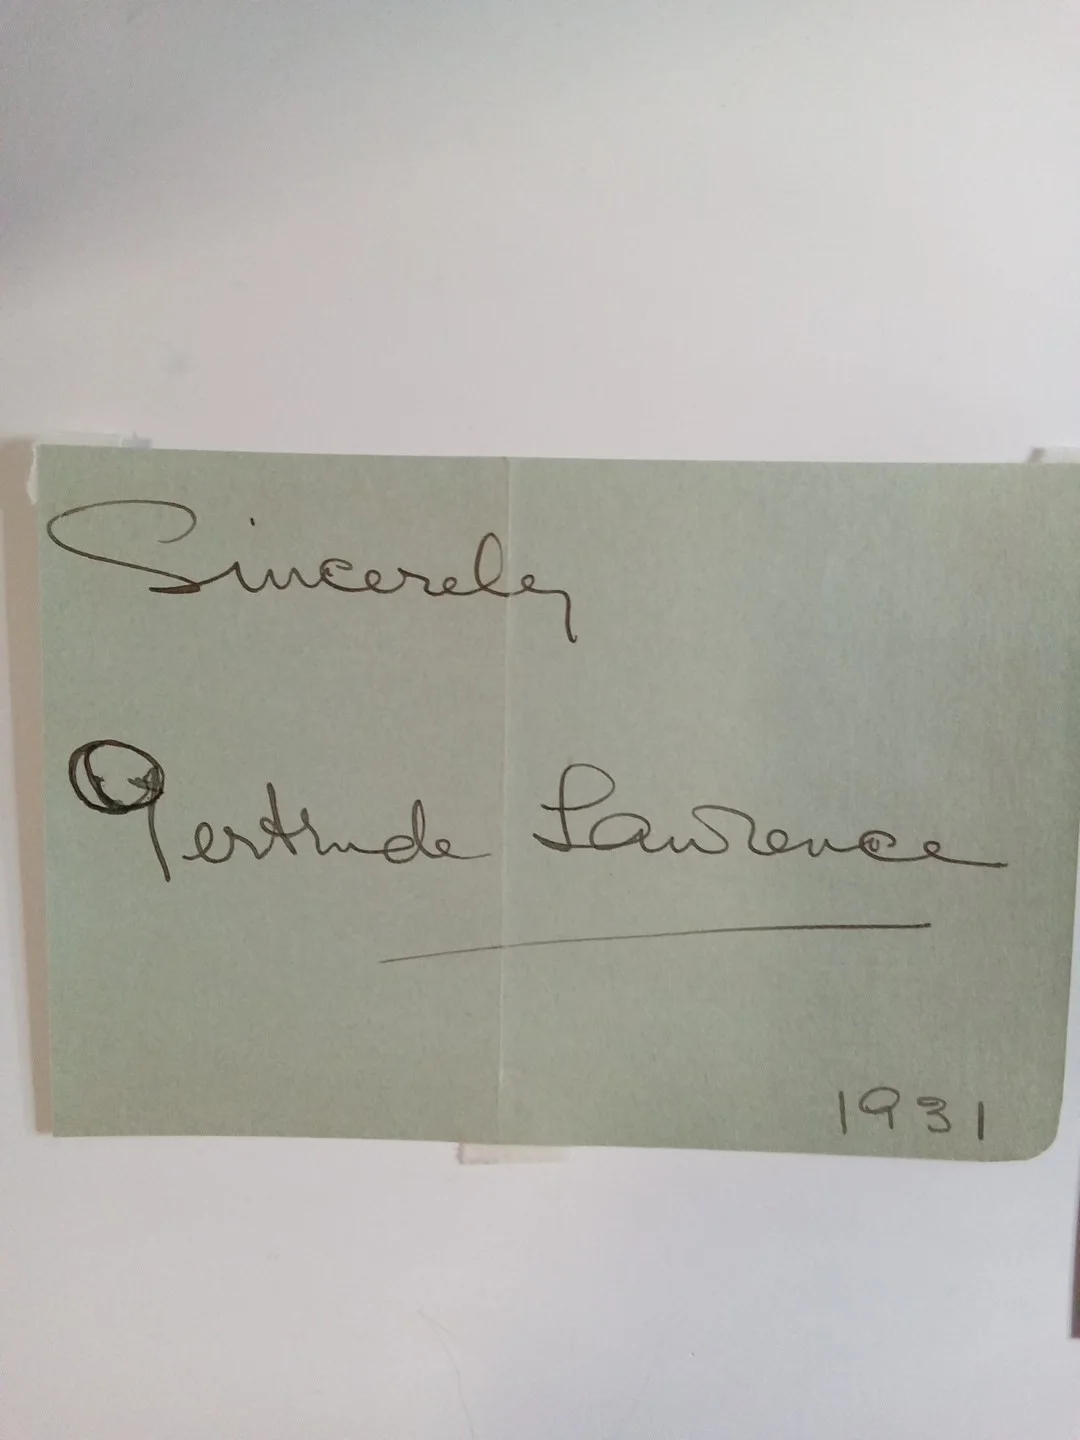 Sincerely
Gertrude Lawrence
1931